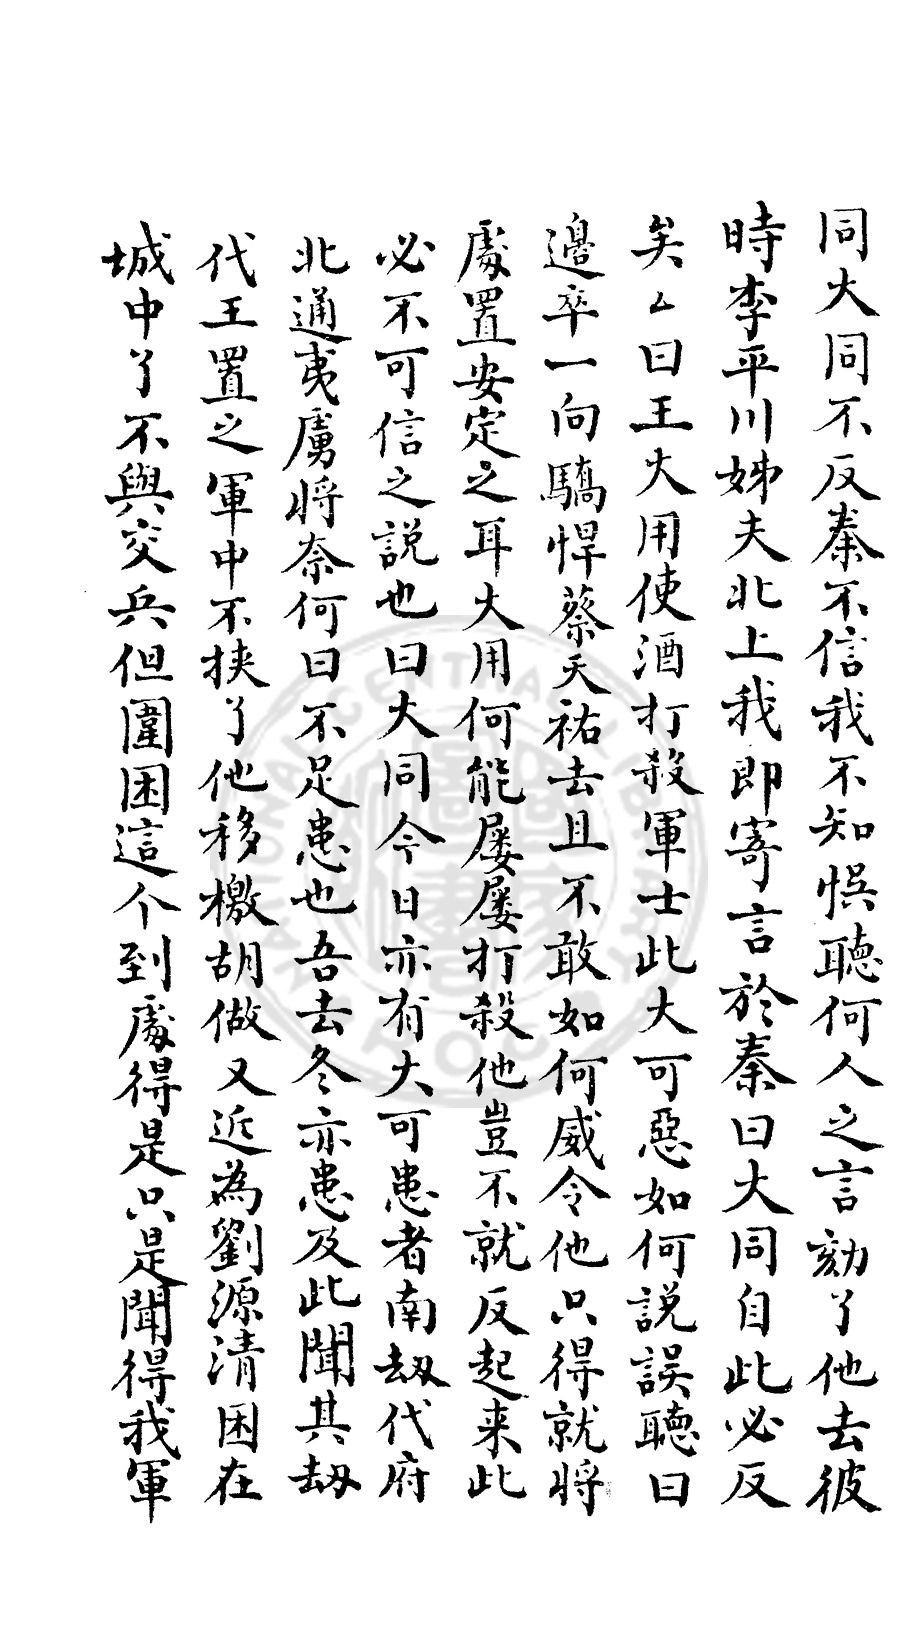 同大同不反秦不信我不知悞聽何人之言劾了他去彼
時李平川姊夫北上我即寄言於秦曰大同自此必反
矣厶曰王大用使酒打殺軍士此大可惡如何説誤聽曰
邊卒一向驕悍蔡天祐去且不敢如何威令他只得就將
處置安定之耳大用何能屡屡打殺他豈不就反起来此
必不可信之説也曰大同今日亦有大可患者南刼代府
北通夷虜將奈何曰不足患也吾去冬亦患及此聞其刼
代王置之軍中不挟了他移檄胡做又近為劉源清困在
城中了不與交兵但圍困這个到處得是只是聞得我軍